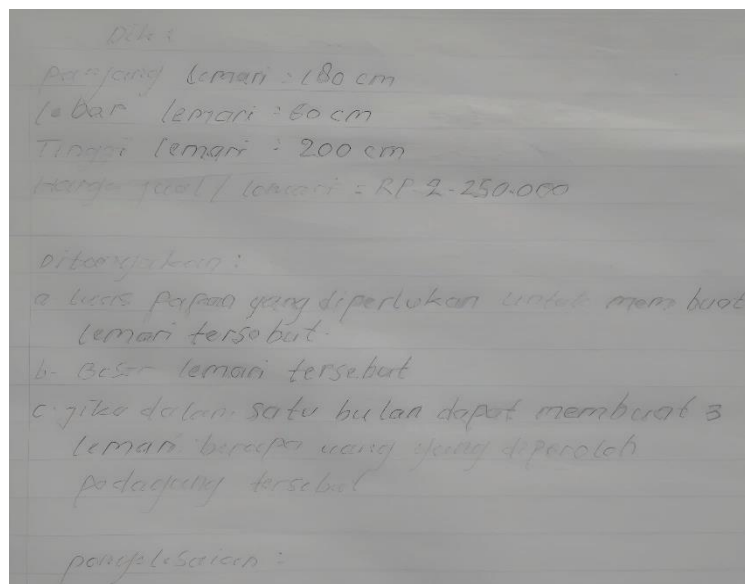 Dik :
Panjang lemari : 180 cm
lebar lemari : 60 cm
Tinggi lemari : 200 cm
Harga jual / lemari = RP 2.250.000
Ditanyakan :
a luas papan yang diperlukan untuk membuat
lemari tersebut.
b. Besar lemari tersebut
c. jika dalam satu bulan dapat membuat 3
lemari berapa uang yang diperoleh
pedagang tersebut
penyelesaian :